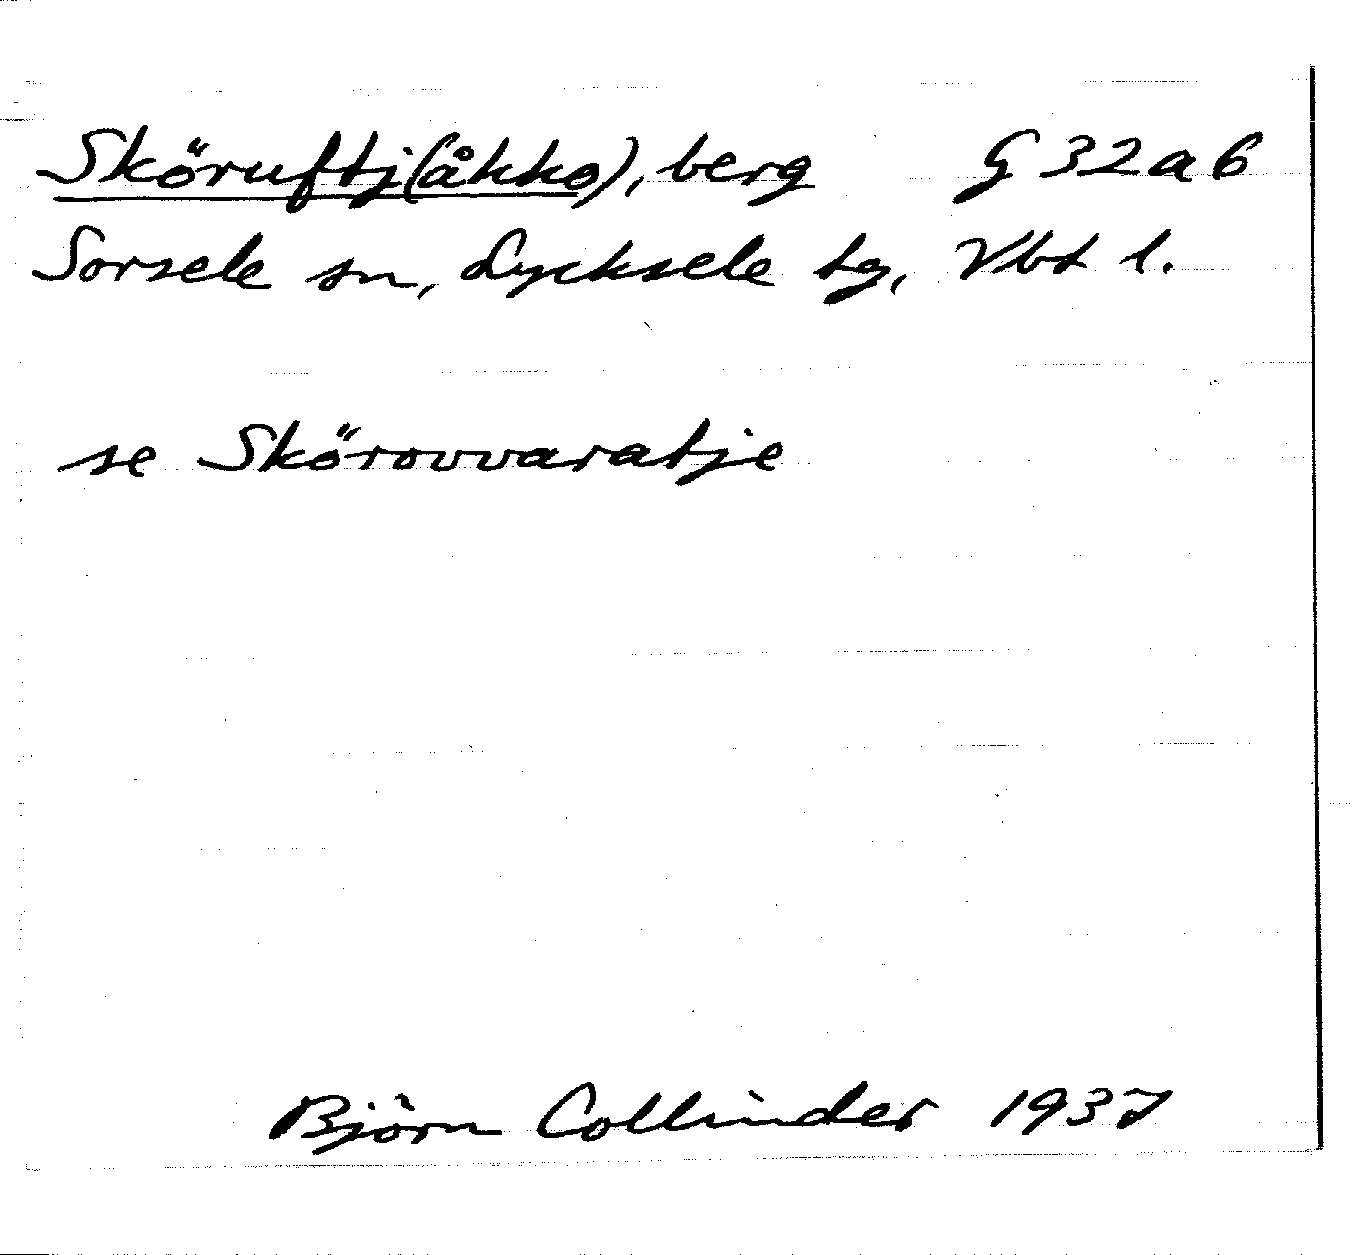 Sköruftj(åkko), berg G 32 a b
Sorsele sn, Lycksele tg, Vbt l.
se Skörovvaratje
Björn Collinder 1937